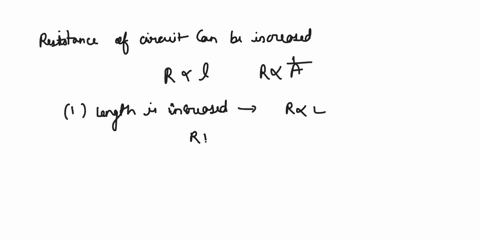 Resistance of circuit can be increased
R ∝ l R ∝ 1/A
(1) Length is increased → R ∝ L
R